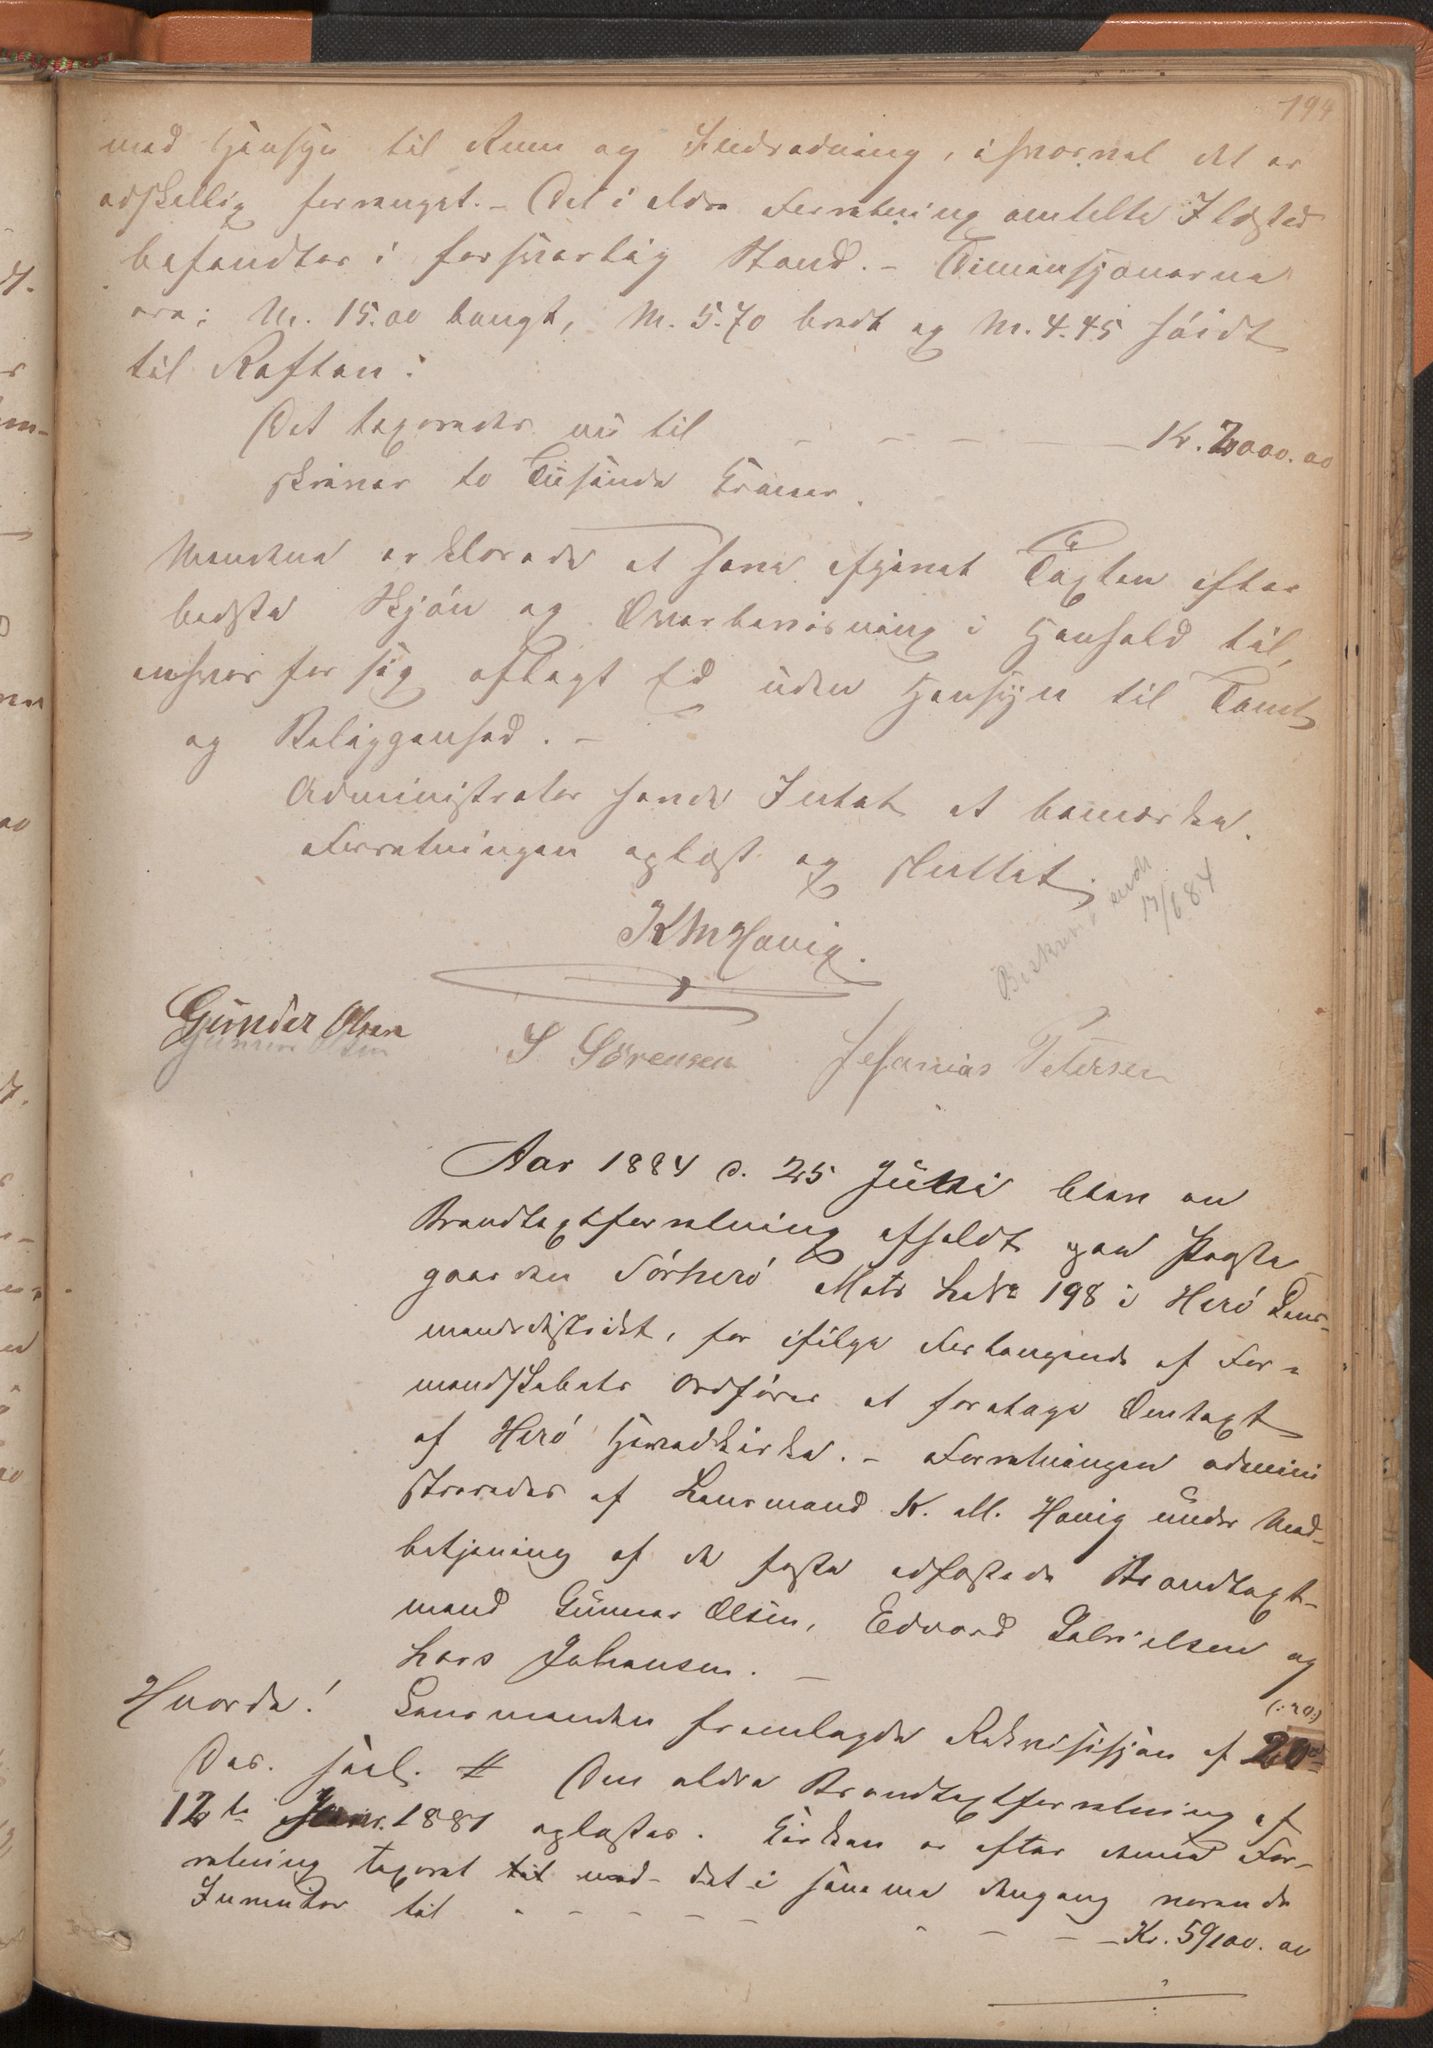 194
med Hensyn til Rum og Indredning, ihvorvel det er
adskellig forrenget. – Det i eldre Forretning omtelte Ildsted
befandtes i forsvarlig Stand. – Dimensjonerne
ere: M. 15.00 langt, M. 5.70 bredt og M. 4.45 høidt
til Raften:
Det taxeredes nu til – – – – – Kr. 2000.00
skriver to Tusinde Kroner.
Mændene erklærede at have afgivet Taxten efter
bedste Skjøn og Overbevisning i Henhold til,
enhver for sig aflagt Ed uden Hensyn til Tomt
og Beliggenhed. –
Administrator havde Intet at bemærke.
Forretningen oplæst og sluttet.
Beskreven
17/6 84
K M Havig.
Gunder Olsen
S Sörensen Jesanias Petersen
Aar 1884 d. 25 Juni blev en
Brandtaxtforretning afholdt paa Preste-
gaarden Sörherö Matr LNo 198 i Herö Lens-
mandsdistrikt, for ifølge Forlangende af For-
mandskabets Ordfører at foretage Omtaxt
af Herö Hovedkirke. – Forretningen admini
streredes af Lensmand K. M. Havig under Med-
betjening af de faste edfæstede Brandtaxt-
mænd Gunnar Olsen, Edvard Gabrielsen og
Lars Johansen. –
Hvorda! Lensmanden fremlagde Rekvisisjon af 20de
(: 20 :)
Ds. Den eldre Brandtaxtforretning af
12te 1881 oplæstes. Kirken er efter denne For-
retning taxeret til med det i samme dengang værende
Inventar til – – – – – – – – Kr. 59100.00